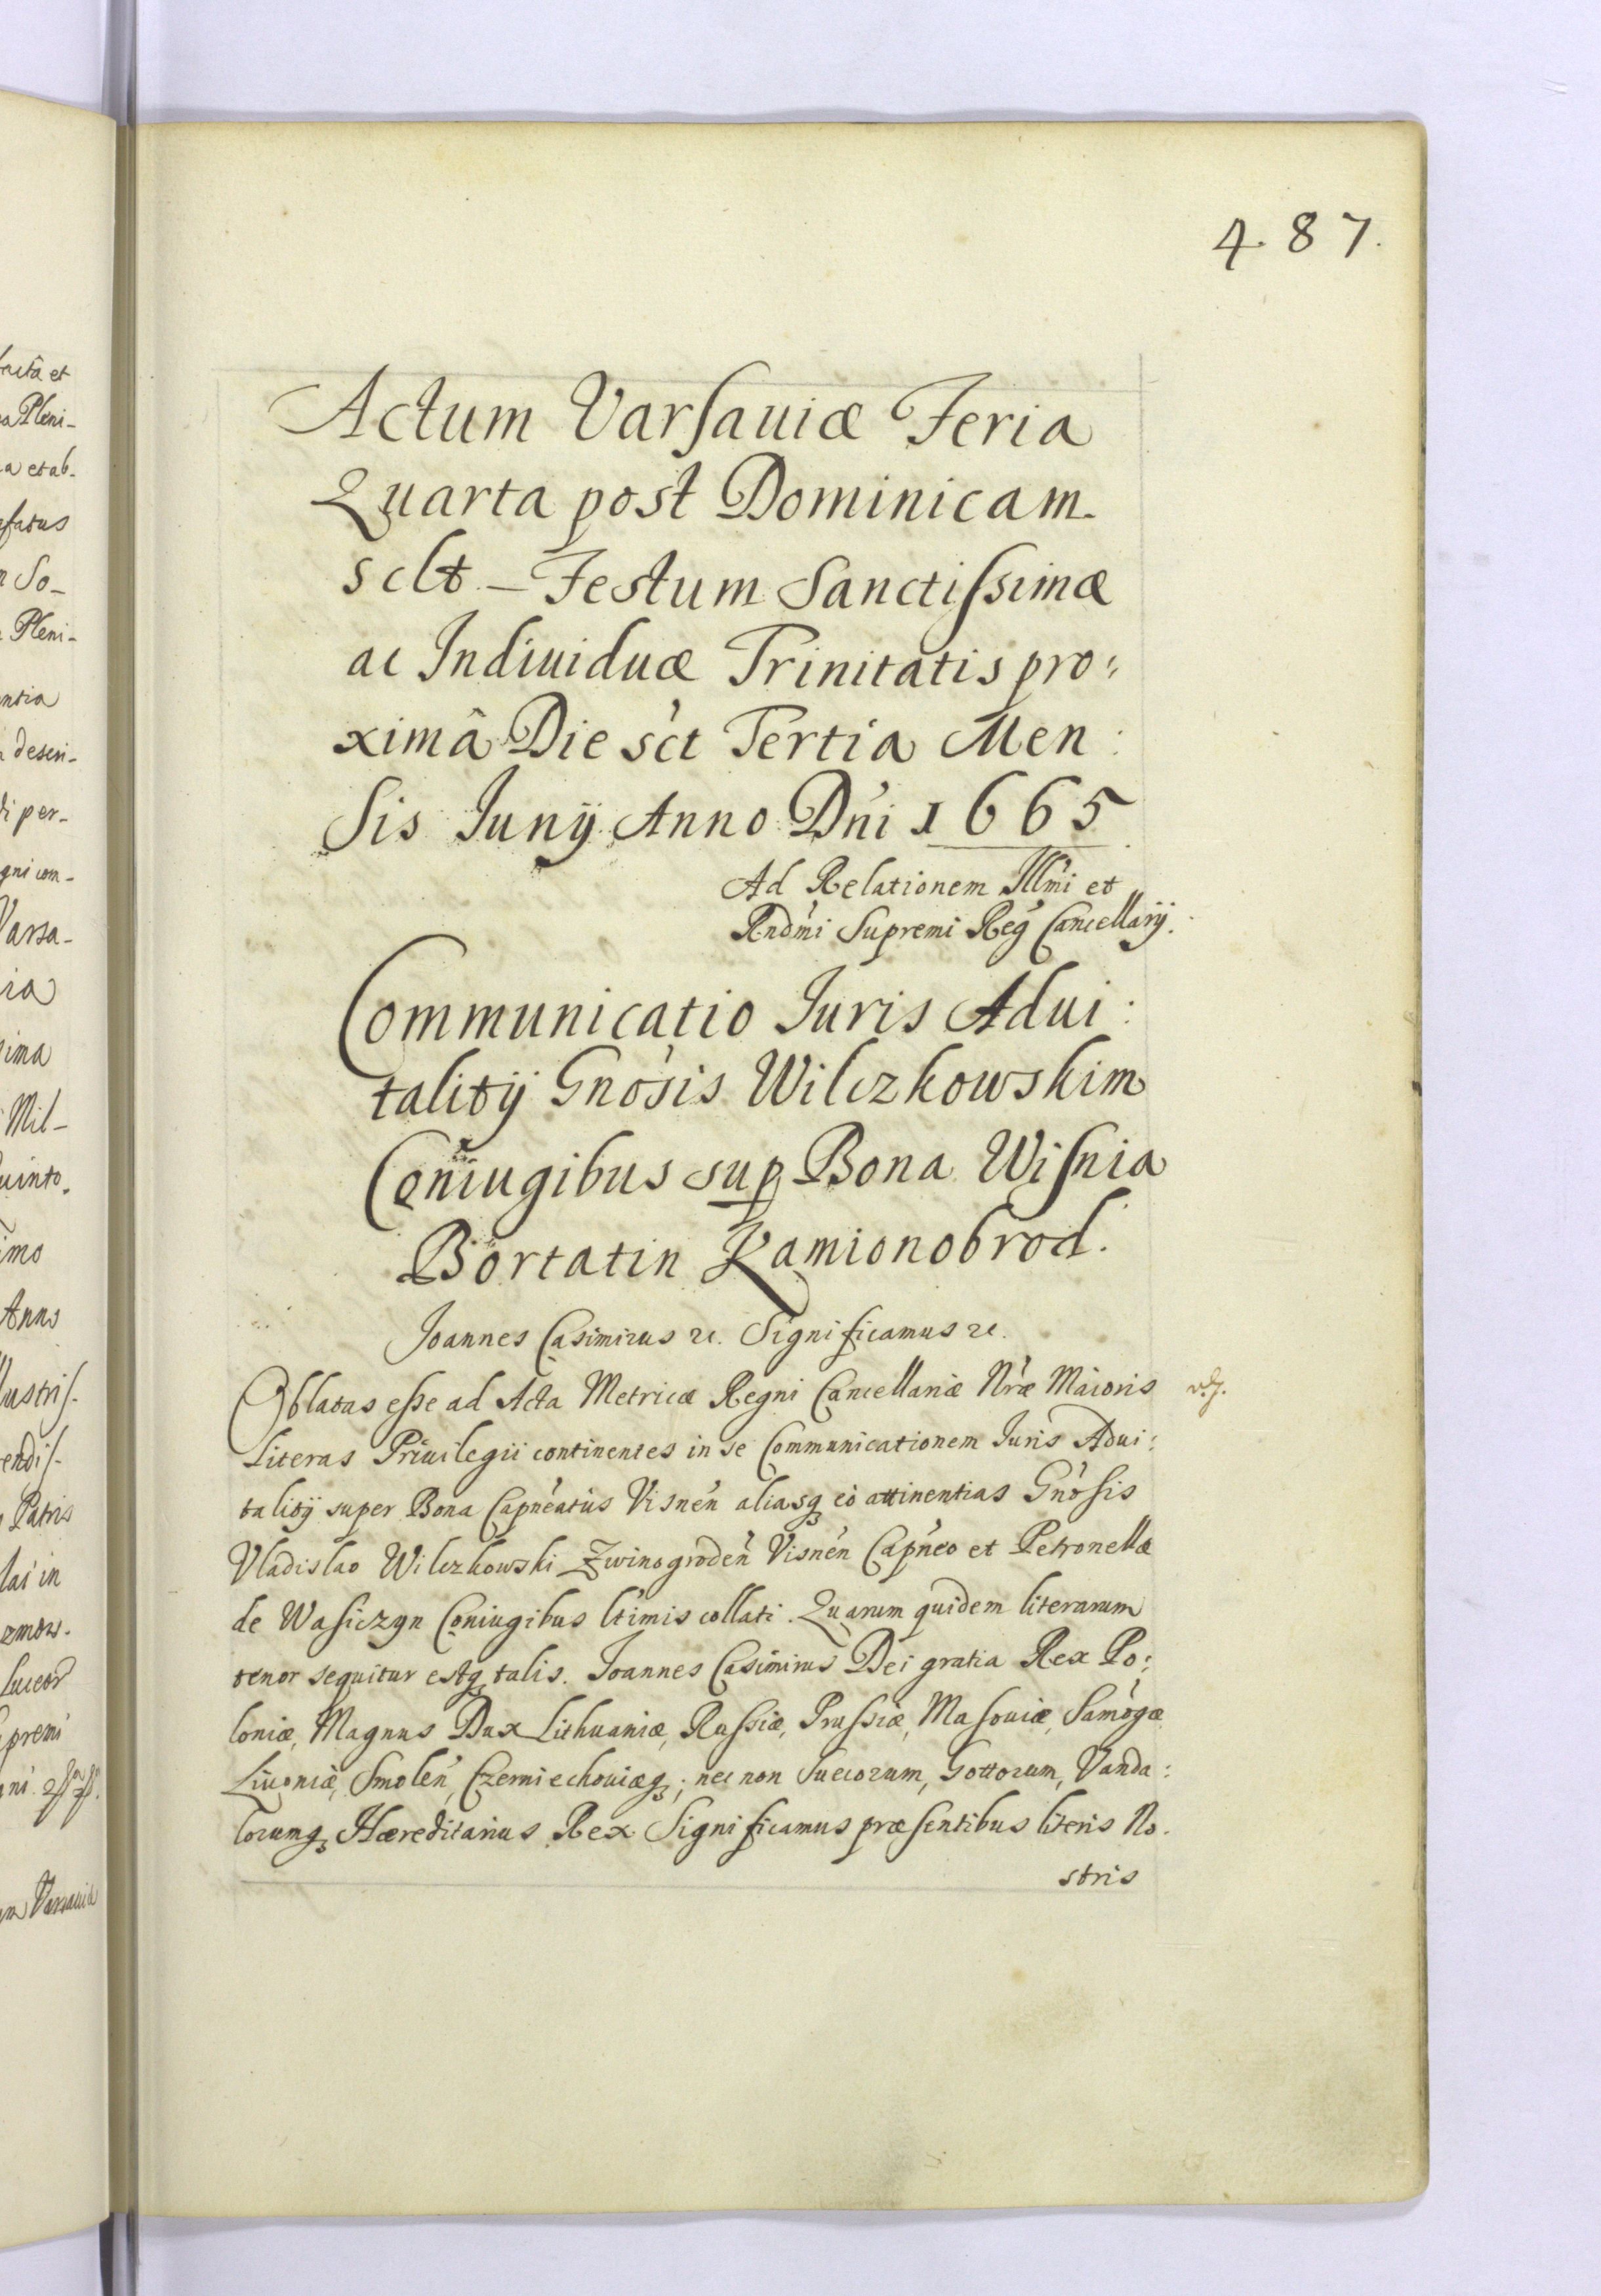 487.
Actum Varsauiæ Feria
Quarta post Dominicam
sclt – Festum Sanctissimæ
ac Indiuiduæ Trinitatis pro:
ximâ Die sct Tertia Men:
sis Iunÿ Anno Dni 1665
Ad Relationem Illmi et
Rndmi Supremi Reg Cancellarÿ.
Communicatio Iuris Adui:
talitÿ Gnosis Wilczkowskim
Coniugibus sup Bona Wisnia
Bortatin Kamionobrod.
Joannes Casimirus rc. Significamus rc.
Oblatas esse ad Acta Metricæ Regni Cancellariæ Nræ Maioris
Literas Priuilegii continentes in se Communicationem Iuris Adui:
talitÿ super Bona Capneatus Visnen aliasq eo attinentias Gnosis
Vladislao Wilczkowski Zwinogroden Visnen Capneo et Petronellæ
de Wasiczyn Coniugibus ltimis collati. Quarum quidem literarum
tenor sequitur estq talis. Joannes Casimirus Dei gratia Rex Po:
loniæ, Magnus Dux Lithuaniæ, Russiæ, Prussiæ, Masouiæ, Samogæ
Liuoniæ, Smolen, Czerniechouiæq; nec non Suecorum, Gottorum, Vanda:
lorumq Hæreditarius Rex Significamus præsentibus literis No.
stris
facta et
a Pleni-
a et ab-
fatus
So-
Pleni-
entia
descri-
di per-
gni com-
Varsa-
ia
ima
Mil-
uinto.
imo
Anno
lustris-
endis-
Patris
lai in
zmow.
Luceor
premi
gni
Varsauia